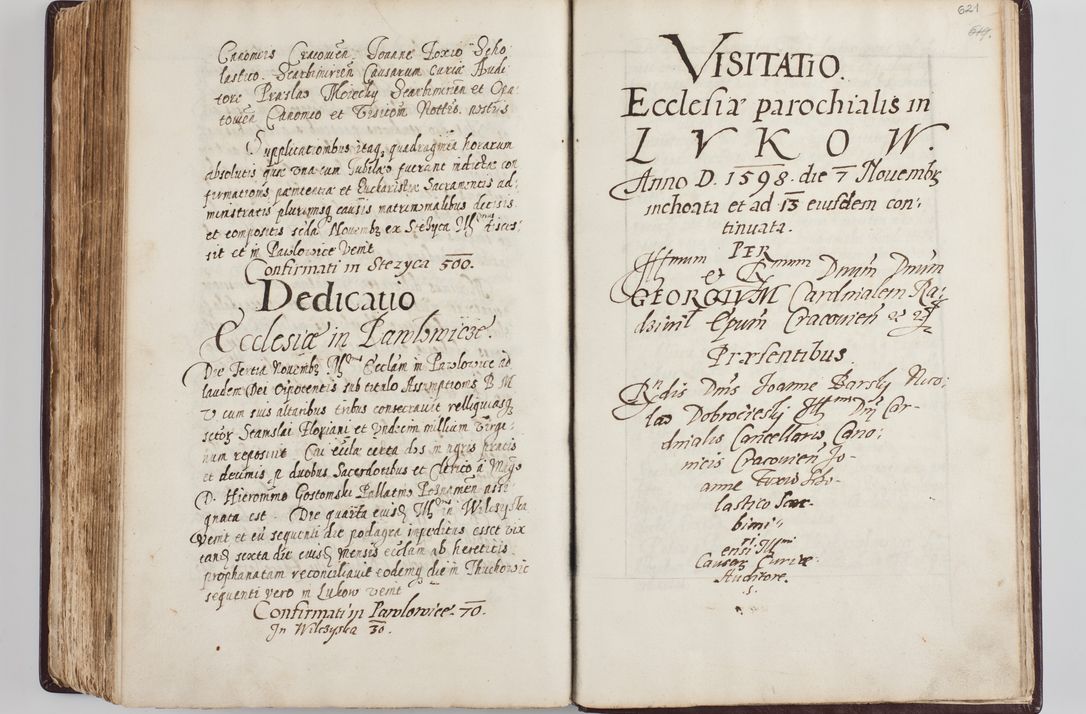 Canonicis Cracovien. Joanne Foxio Scho
lastico Scarbimirien Causarum Curiæ Audi
tore Præslao Moiecky Scarbimirien et Opa
tovien Canonico et Fisicom Nottrio. nostris
Supplicationibus itaq, quadraginta horarum
absolutis quæ una cum Jubilæo fuerant indictæ con
firmationis pænitentiæ et Eucharistiæ Sacramentis ad,
ministratis plurimisq causis matrimonialibus decisis
et compositis 2da Novemb ex Stezyca Illmus disces:
sit et in Pawlowice venit
Confirmati in Stezyca 500.
Dedicatio
Ecclesiæ in Pawlowicze.
Die Tertia Novemb Illmus Ecclam in Pawlowice ad
laudem Dei Oipotentis sub titulo Assumptionis B M
V cum suis altaribus tribus consecravit relliquiasq
sctor Stanislai Floriani et Undecim millium Virgi-
num reposuit Cui eccla certa dos in agris pratis
et decimis p duobus Sacerdotibus et Clerico a Mgo
D. Hieronimo Gostomski Pallatino Posnanien assi
gnata est. Die quarta eius Illmus in Wilczyska
venit et cu sequenti die podagra impeditus esset vix
tand sexta die eius mensis ecclam ab hereticis
prophanatam reconciliavit eodemq die in Thuchowic
sequenti vero in Lukow venit
Confirmati in Pawlowice 70.
In Wilczyska 30.
621
VISITATIO.
Ecclesiæ parochialis in
LVKOW.
Anno D. 1598. die 7 Novemb
inchoata et ad 13 eiusdem con:
tinuata.
PER
Illmum et Rmum Dnum Dnum
GEORGIVM Cardinalem Ra:
dzivil Epum Cracovien &c &c
Præsentibus
Rndis Dnis Joanne Barsky Nico:
lao Dobrocieski Illmi Dni Car-
dinalis Cancellario, Cano:
nicis Cracovien, Jo-
anne Fuxio Scho-
lastico Scar-
bimi-
ri-
ensi Illmi
Causar Curiæ
Auditore.
.s.